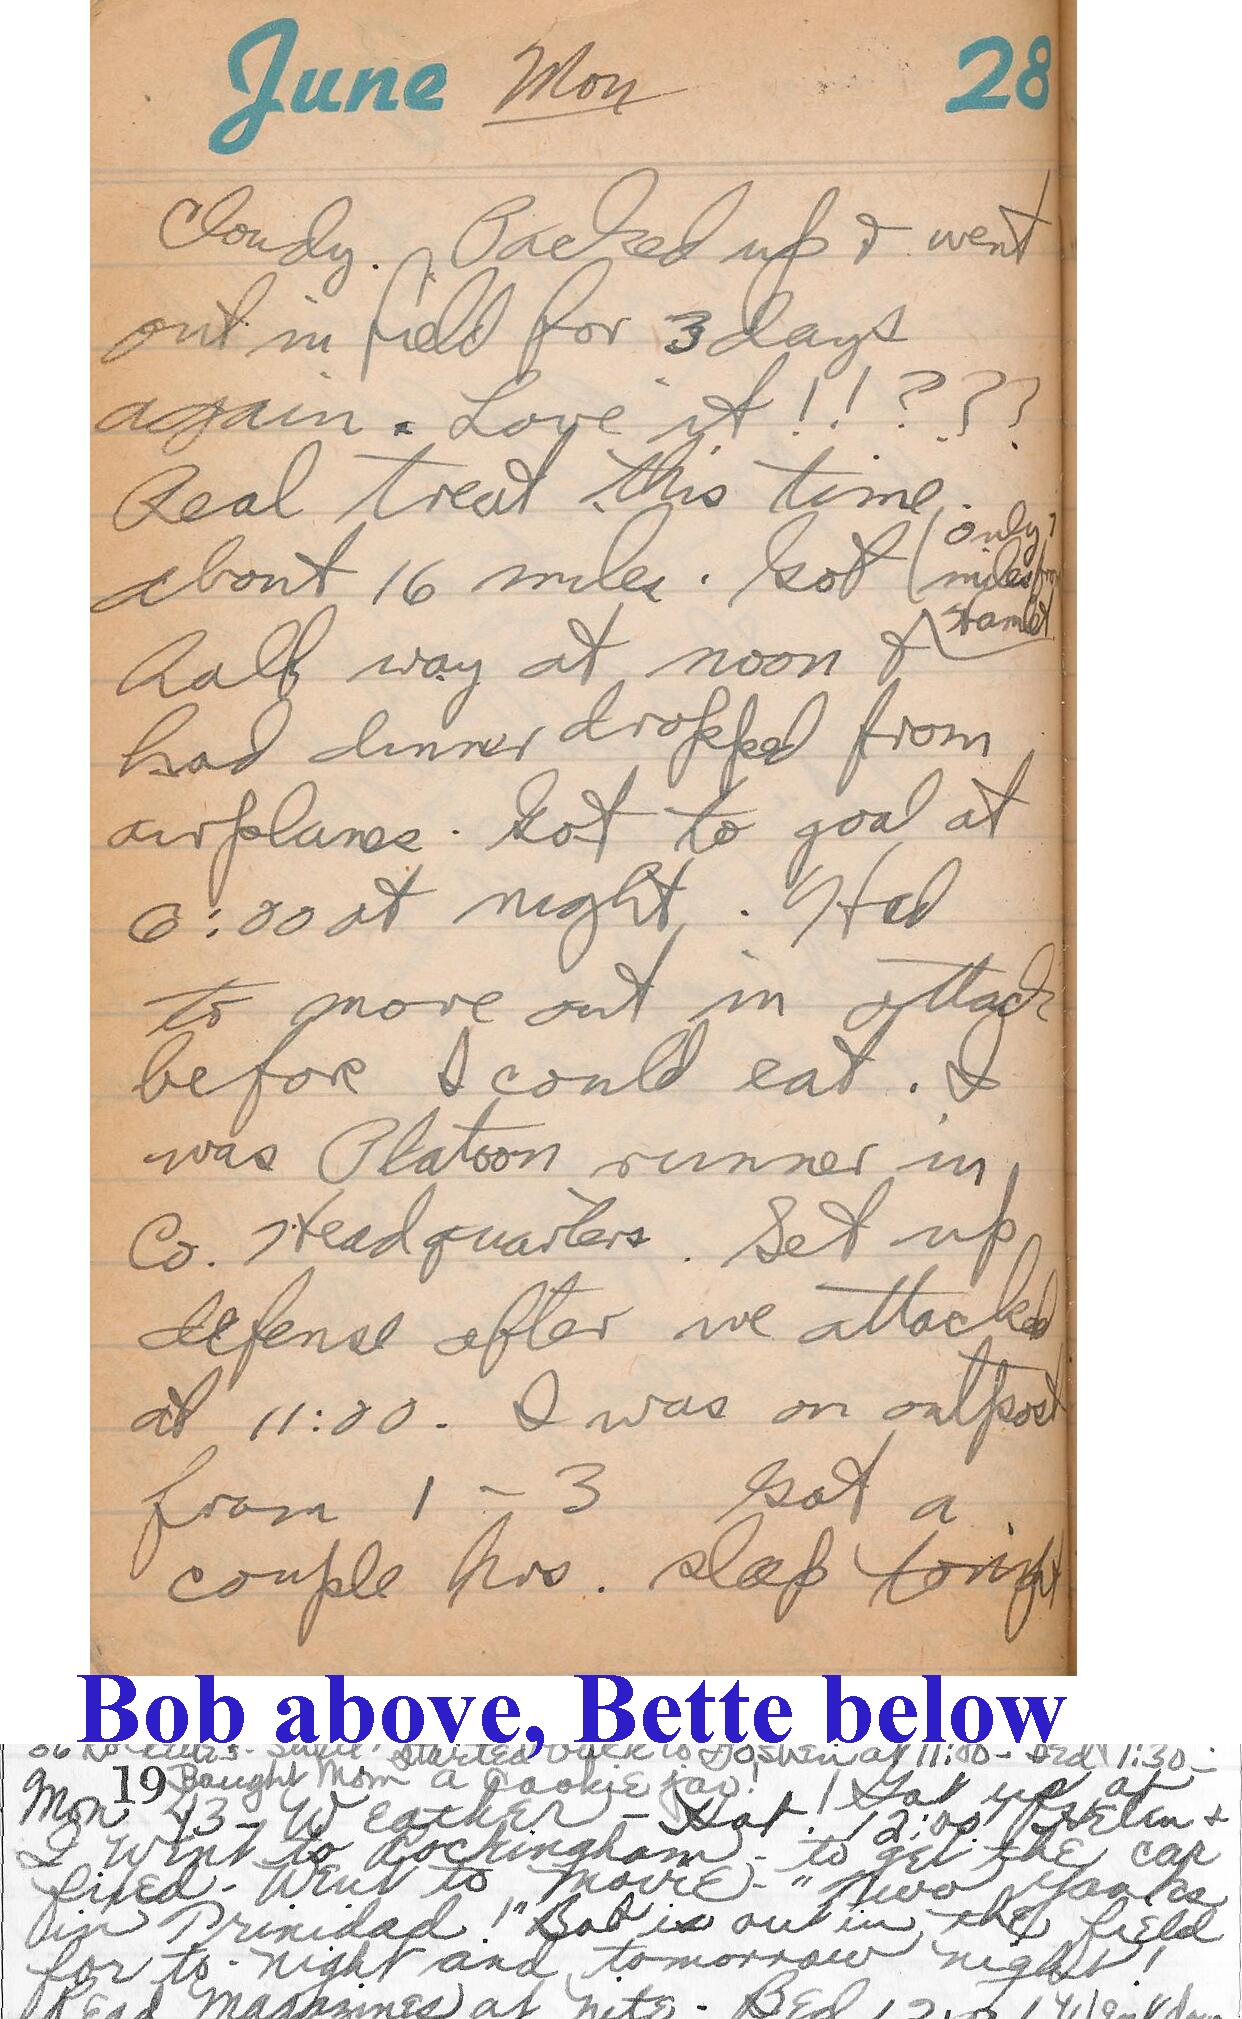 June Mon 28
Cloudy. Packed up & went
out in field for 3 days
again. Love it!!???
Real treat this time.
about 16 miles. Got (only 7
miles from
Hamlet
half way at noon &
had dinner dropped from
airplanes. Got to goal at
6:00 at night. Had
to move out in attack
before I could eat. I
was Platoon runner in
Co. Headquarters. Set up
defense after we attacked
at 11:00. I was on outpost
from 1 - 3 Got a
couple hrs. sleep tonight
Bob above, Bette below
Started back to Goshen at 11:00 - Bed 1:30 -
19 Bought Mom a Cookie jar!
Mon 43 - Weather - Hot! Got up at
12:00! Helen &
I went to Rockingham - to get the car
fixed - Went to movie - "Two Yanks
in Trinidad!" Bob is out in the field
for to-night and tomorrow night!
Read Magazines at nite - Bed